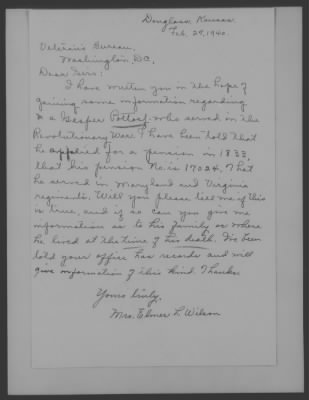 Douglass, Kansas.
Feb. 29, 1940.
Veteran's Bureau,
Washington, D.C.
Dear Sirs:
I have written you in the hope of
gaining some information regarding
a Gasper Pottorf who served in the
Revolutionary War. I have been told that
he applied for a pension in 1833,
that his pension No. is 17024. That
he served in Maryland and Virginia
regiments. Will you please tell me if this
is true, and if so can you give me
information as to his family or where
he lived at the time of his death. I've been
told your office has records and will
give information of this kind. Thanks.
Yours truly,
Mrs. Elmer L. Wilson